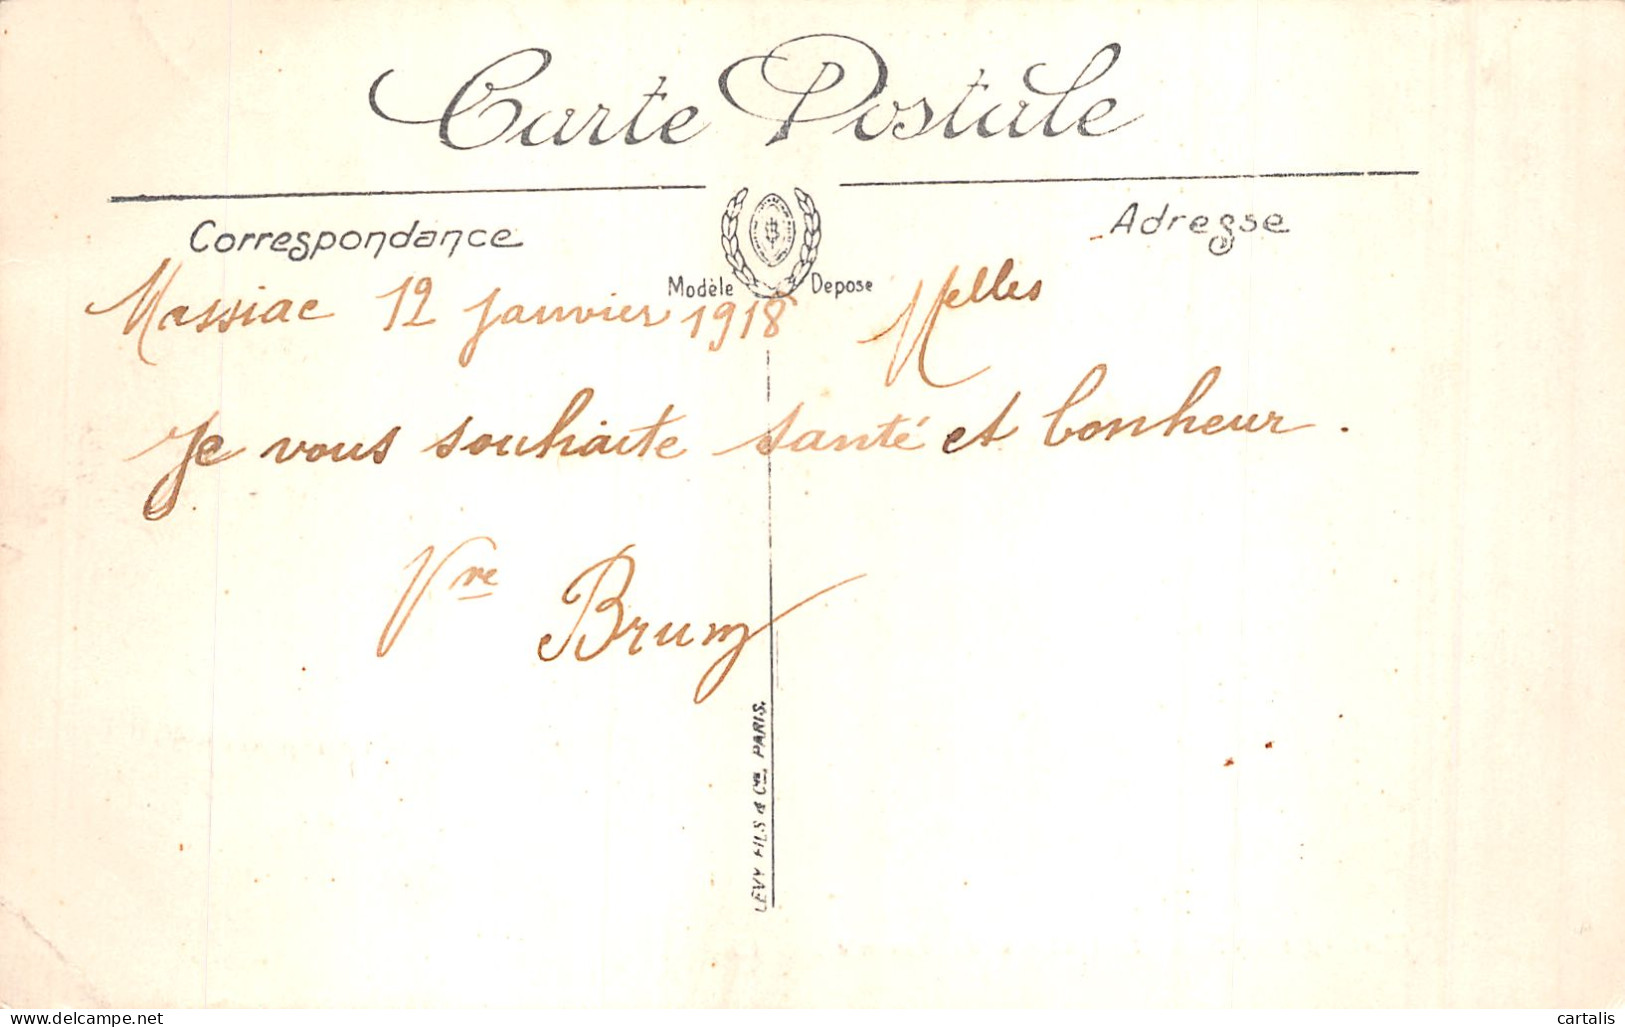 Carte Postale
Correspondance
Adresse
Modèle Deposé
Massiac 12 Janvier 1918 Melles
Je vous souhaite santé et bonheur.
Vve Brun
LÉVY FILS & Cie PARIS.
delcampe.net
cartalis